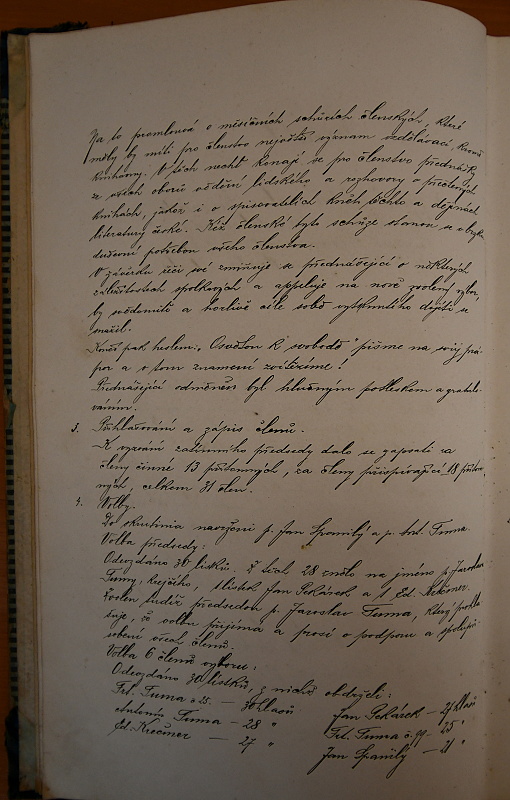 Na to promlouvá o měsíčních schůzích členských, které
měly by míti pro členstvo největší význam vzdělávací, kromě
knihovny. V těch nechť konají se pro členstvo přednášky
ze všech oborů vědění lidského a rozhovory o přečtených
knihách, jakož i o spisovatelích knih těchto a dějinách
literatury české. Kéž členské tyto schůze stanou se
duševní potřebou všeho členstva.
V závěrku řeči své zmiňuje se přednášející o některých
záležitostech spolkových a apeluje na nově zvolený výbor,
by svědomitě a horlivě cíle sobě vytknutého dojíti se
snažil.
Končí pak heslem: „Osvětou k svobodě" pišme na svůj prá-
por a v tom znamení zvítězíme!
Přednášející odměněn byl hlučným potleskem a gratulo-
váním.
3. Přihlašování a zápis členů.
K vyzvání zatímního předsedy dalo se zapsati za
členy činné 13 přítomných, za členy přispívající 18 přítom-
ných, celkem 31 člen.
4. Volby.
Do skrutinia navrženi p. Jan Spanilý a p. Ant. Tuma.
Volba předsedy:
Odevzdáno 30 lístků. Z těch 28 znělo na jméno p. Jaroslav
Tumy, krejčího 1 lístek Jan Pekárek a 1 Ed. Krečmer.
Zvolen tudíž předsedou p. Jaroslav Tuma, který prohla-
šuje, že volbu přijímá a prosí o podporu a spolupů-
sobení všech členů.
Volba 6 členů výboru:
Odevzdáno 30 lístků, z nichž obdrželi:
Frt. Tuma č. 25. — 30 hlasů Jan Pekárek — 27 hlasů
Antonín Tuma — 28 " Frt. Tuma č. 99 — 25 "
Ed. Krečmer — 27 " Jan Spanilý — 21 "